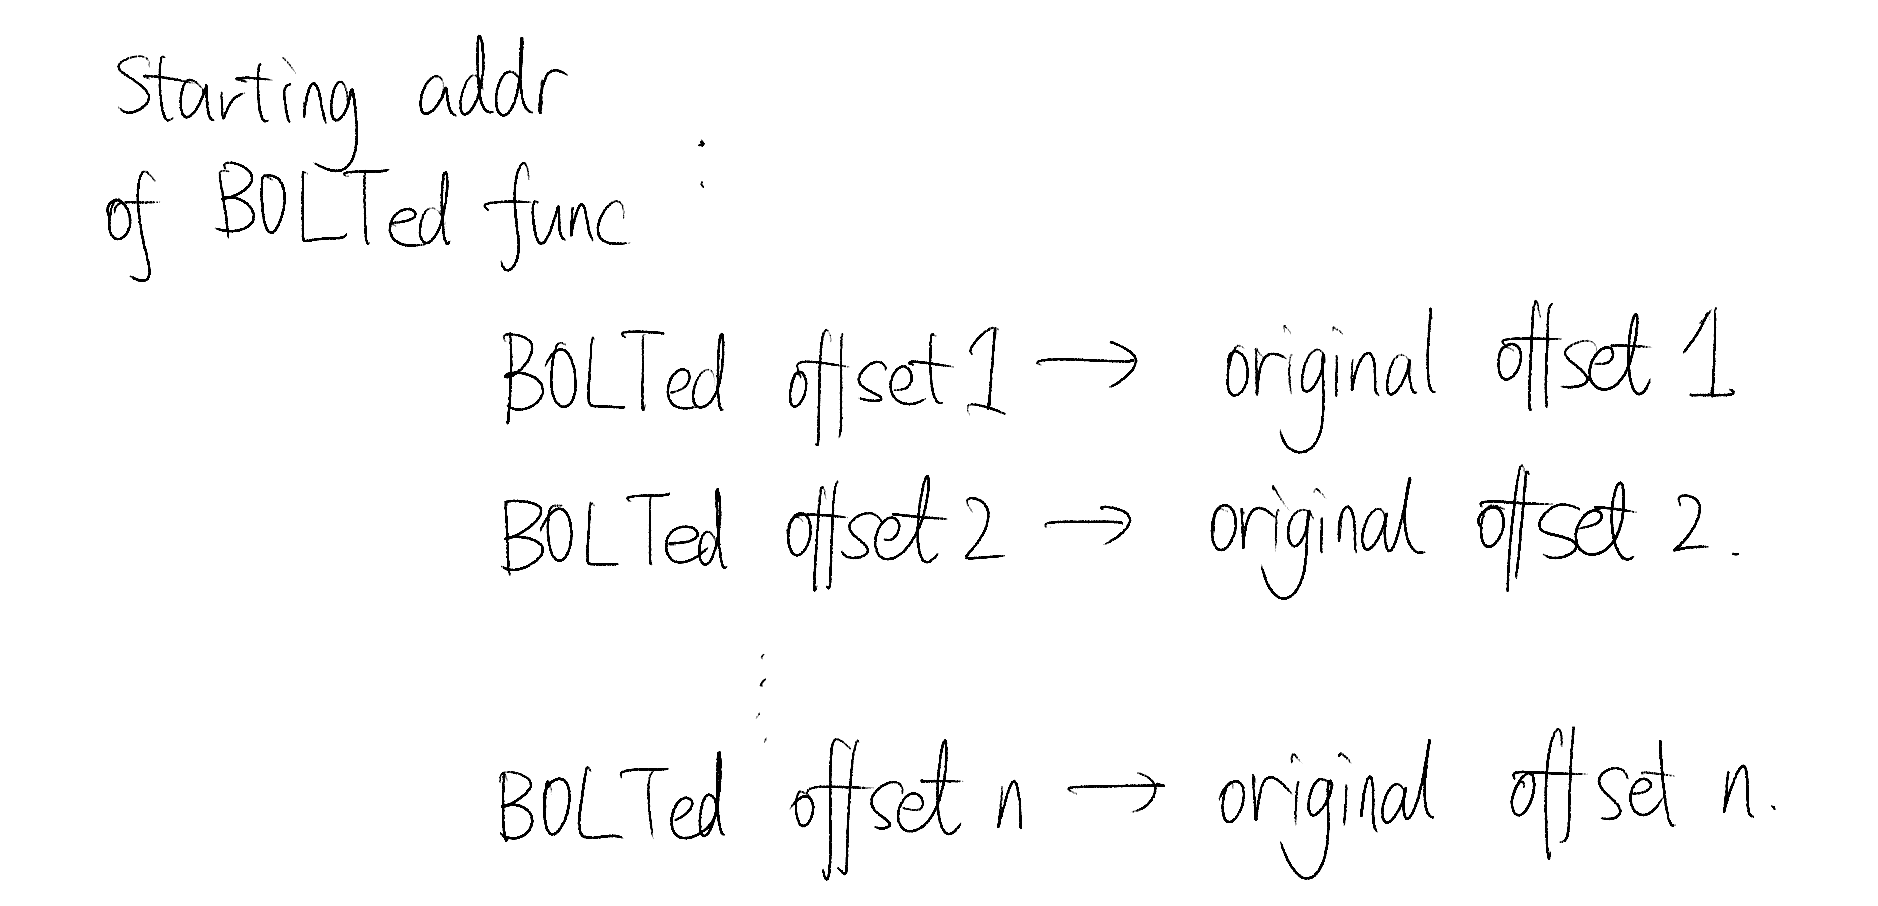 Starting addr
of BOLTed func :
BOLTed offset 1 → original offset 1
BOLTed offset 2 → original offset 2.
⋮
BOLTed offset n → original offset n.